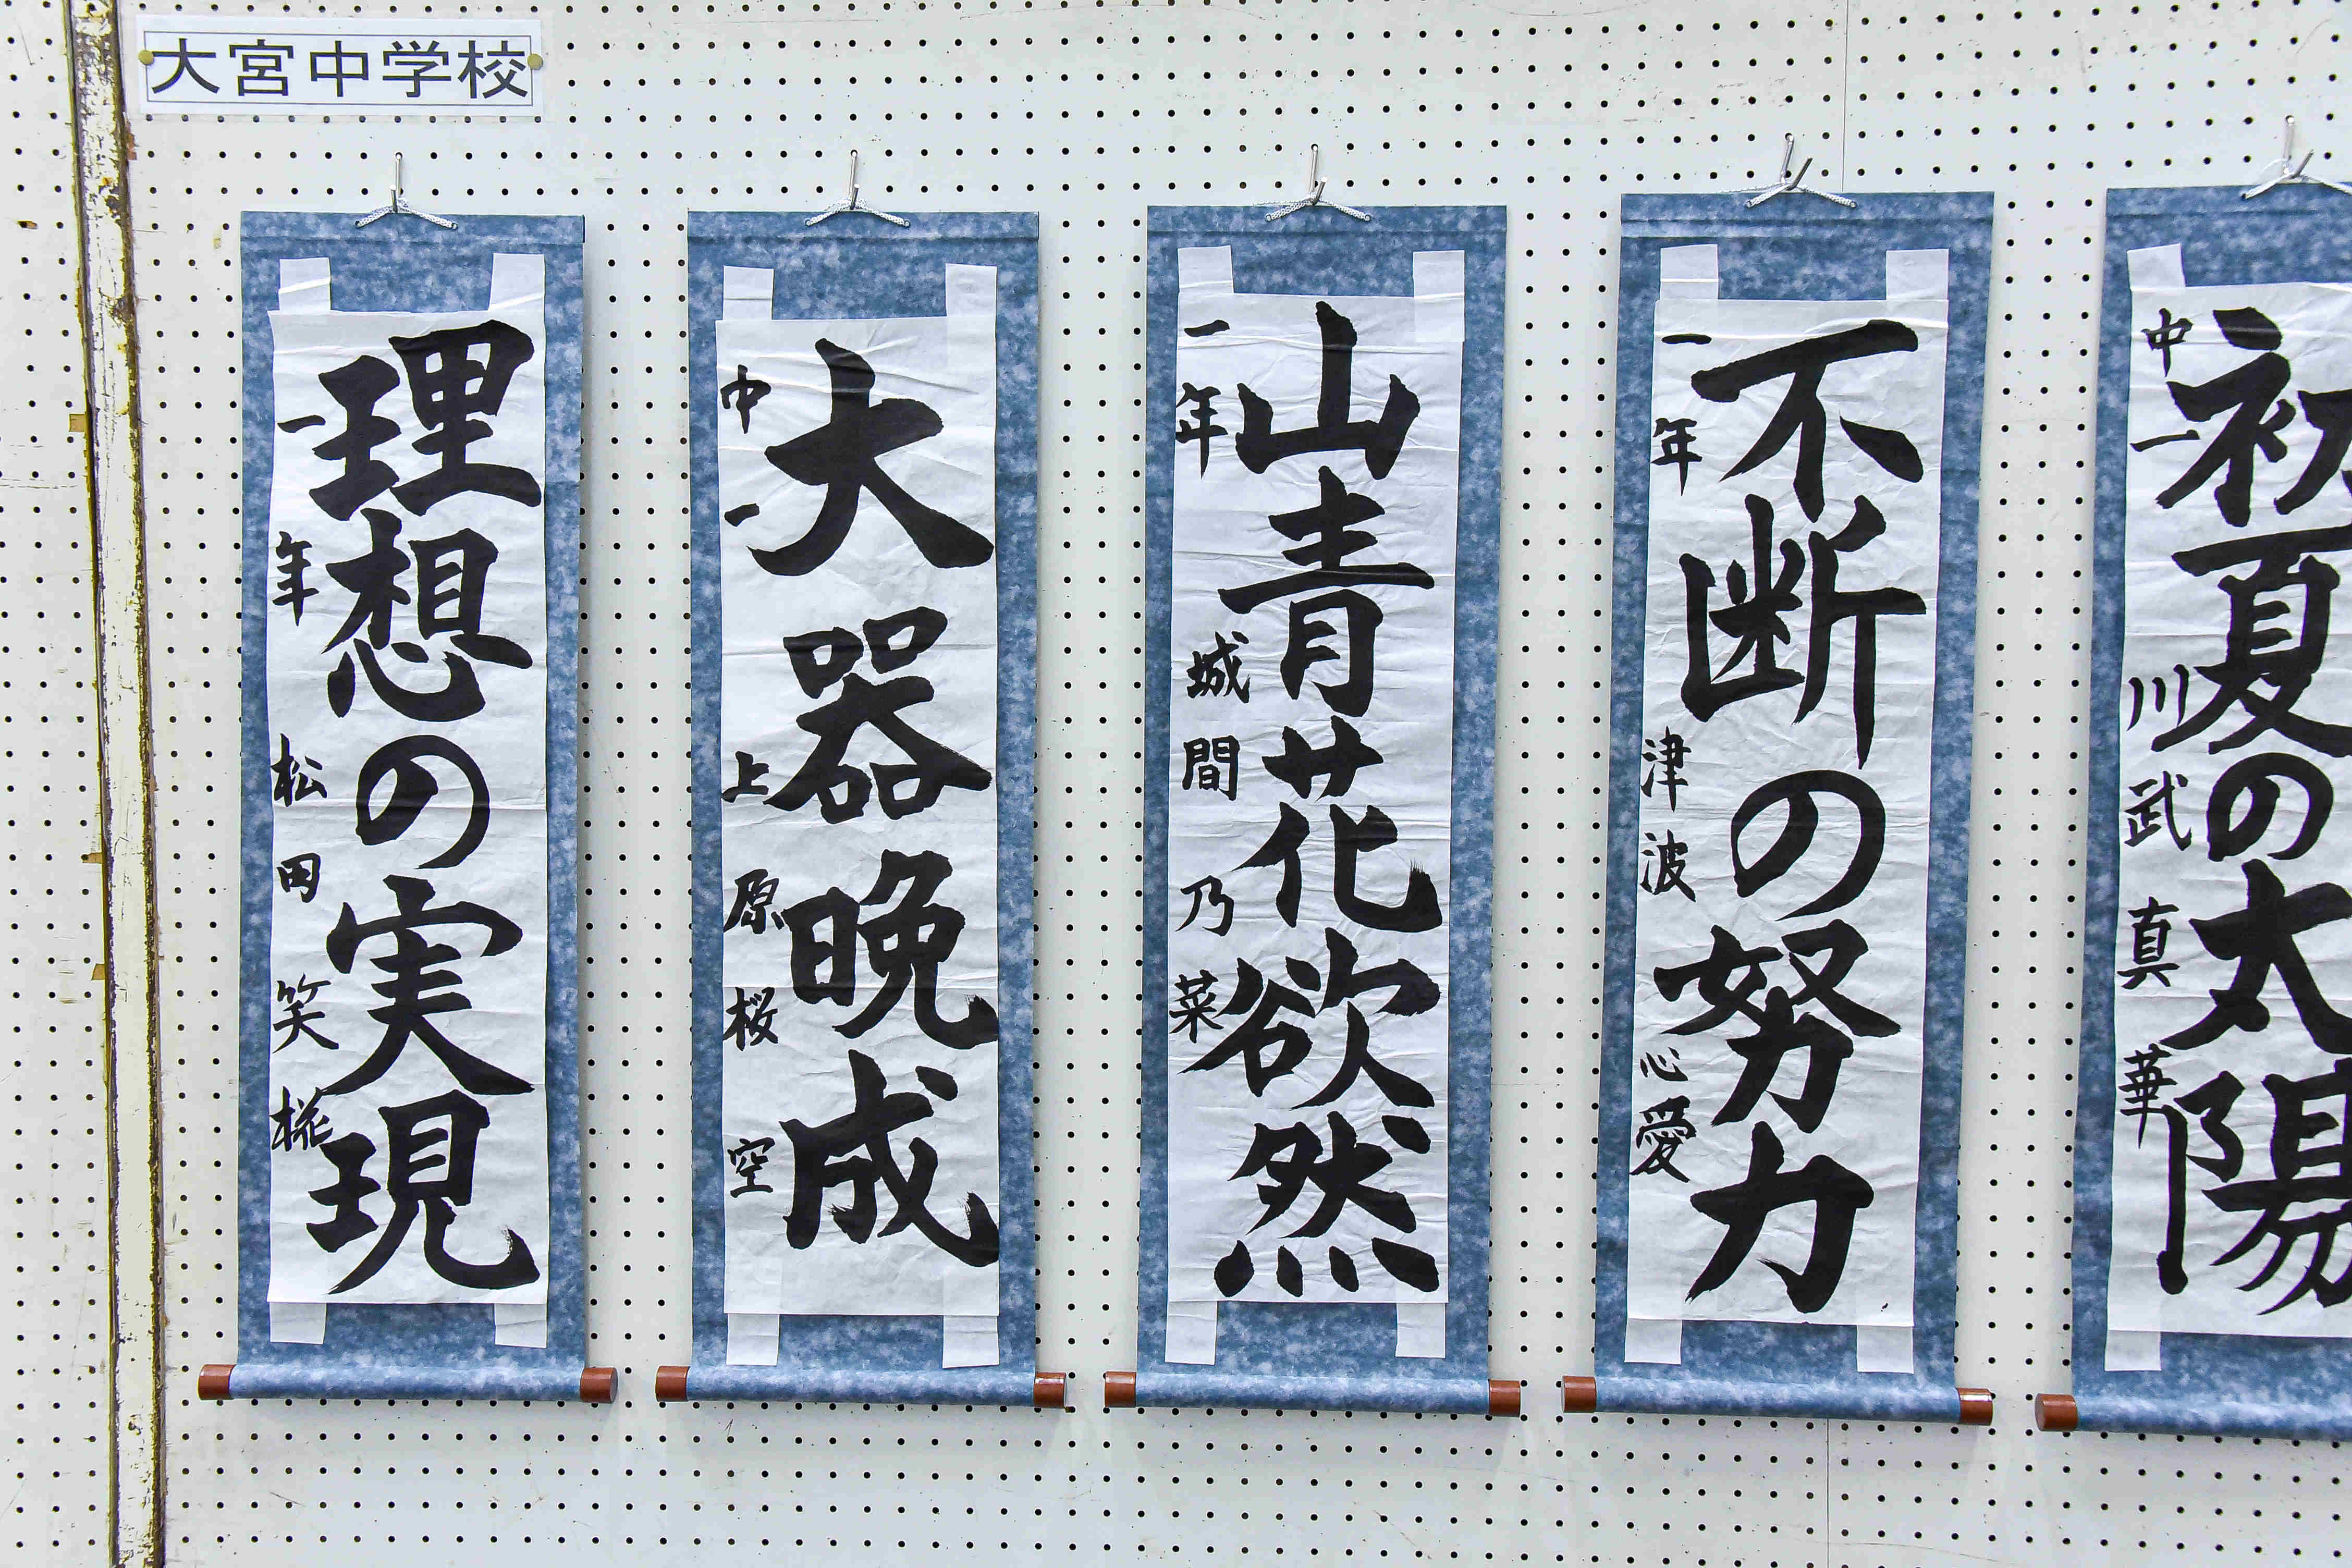 大宮中学校
理想の実現
一年 松田 笑椛
大器晩成
中一 上原 桜空
山青花欲然
一年 城間 乃菜
不断の努力
一年 津波 心愛
初夏の太陽
中一 川武 真華